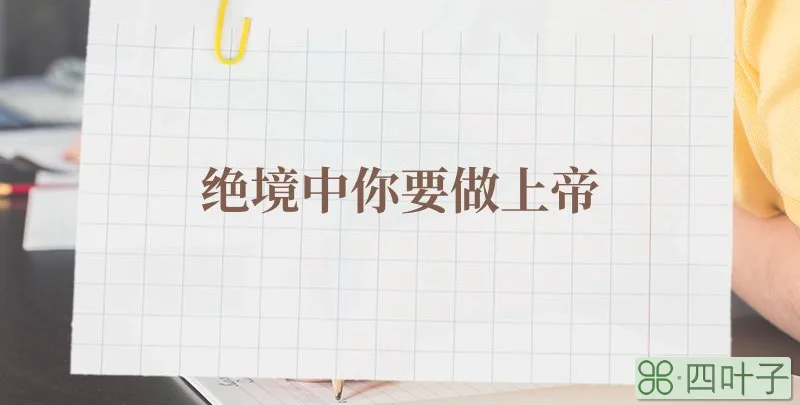 绝境中你要做上帝
四叶子